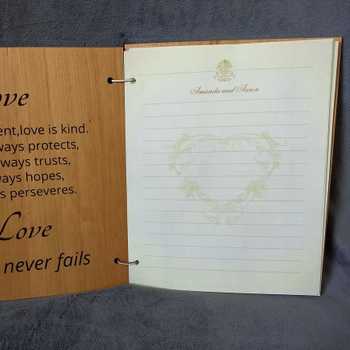 ove
ent,love is kind.
ways protects,
ways trusts,
ays hopes,
s perseveres.
Love
never fails
Amanda and Aaron